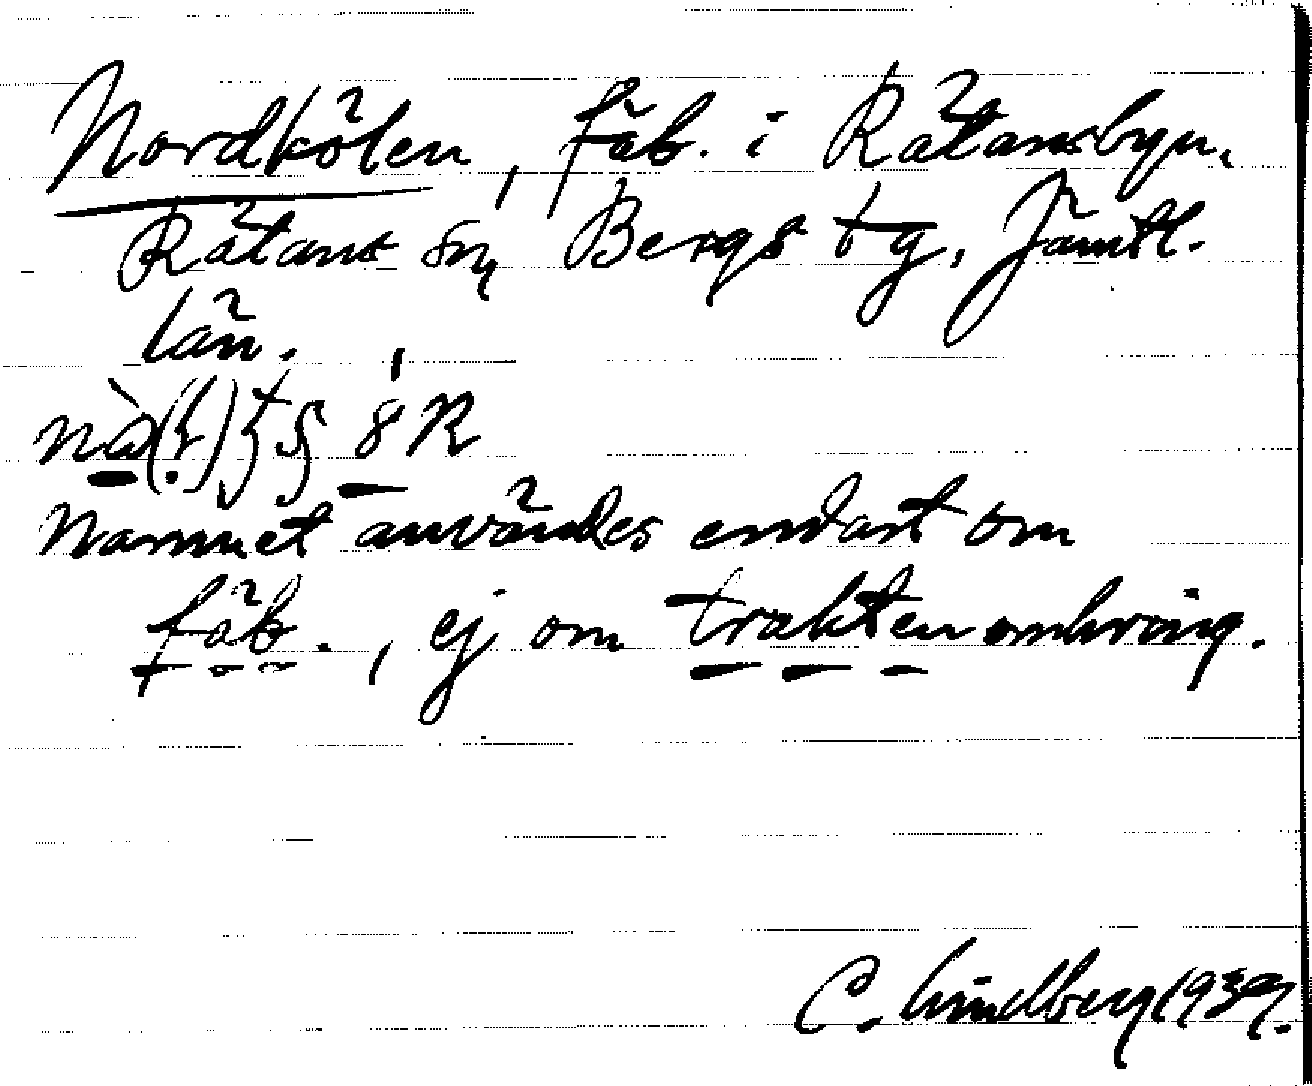 Nordkölen, fäb. i Rätansbyn,
Rätans sn, Bergs tg, Jämtl.
län.
Namnet användes endast om
fäb., ej om trakten omkring.
C. Lindberg 1939.